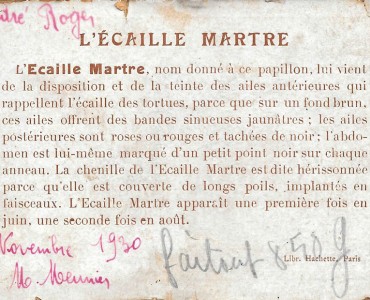 Roger
L'ÉCAILLE MARTRE
L'Ecaille Martre, nom donné à ce papillon, lui vient
de la disposition et de la teinte des ailes antérieures qui
rappellent l'écaille des tortues, parce que sur un fond brun,
ces ailes offrent des bandes sinueuses jaunâtres; les ailes
postérieures sont roses ou rouges et tachées de noir; l'abdo-
men est lui-même marqué d'un petit point noir sur chaque
anneau. La chenille de l'Ecaille Martre est dite hérissonnée
parce qu'elle est couverte de longs poils, implantés en
faisceaux. L'Ecaille Martre apparaît une première fois en
juin, une seconde fois en août.
Novembre 1930
Libr. Hachette, Paris
M. Meunier